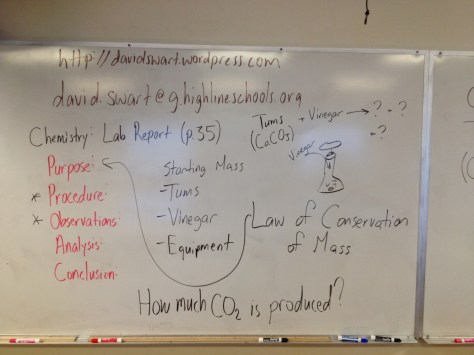 http://davidswart.wordpress.com
david.swart@g.highlineschools.org
Chemistry: Lab Report (p.35)
Purpose:
* Procedure:
* Observations:
Analysis:
Conclusion:
Starting Mass
- Tums
- Vinegar
- Equipment
Tums + Vinegar → ? + ?
(CaCO3) + ?
Vinegar
Law of Conservation
of Mass
How much CO2 is produced?